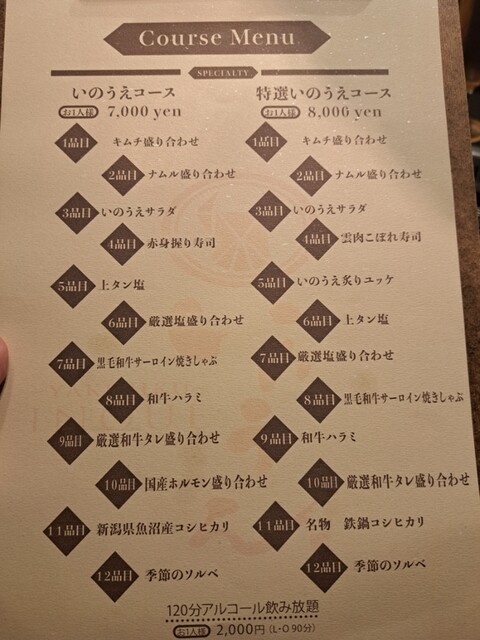 Course Menu
SPECIALTY
いのうえコース
お1人様 7,000 yen
1品目 キムチ盛り合わせ
2品目 ナムル盛り合わせ
3品目 いのうえサラダ
4品目 赤身握り寿司
5品目 上タン塩
6品目 厳選塩盛り合わせ
7品目 黒毛和牛サーロイン焼きしゃぶ
8品目 和牛ハラミ
9品目 厳選和牛タレ盛り合わせ
10品目 国産ホルモン盛り合わせ
11品目 新潟県魚沼産コシヒカリ
12品目 季節のソルベ
特選いのうえコース
お1人様 8,000 yen
1品目 キムチ盛り合わせ
2品目 ナムル盛り合わせ
3品目 いのうえサラダ
4品目 雲肉こぼれ寿司
5品目 いのうえ炙りユッケ
6品目 上タン塩
7品目 厳選塩盛り合わせ
8品目 黒毛和牛サーロイン焼きしゃぶ
9品目 和牛ハラミ
10品目 厳選和牛タレ盛り合わせ
11品目 名物 鉄鍋コシヒカリ
12品目 季節のソルベ
120分アルコール飲み放題
お1人様 2,000円 (L・O 90分)